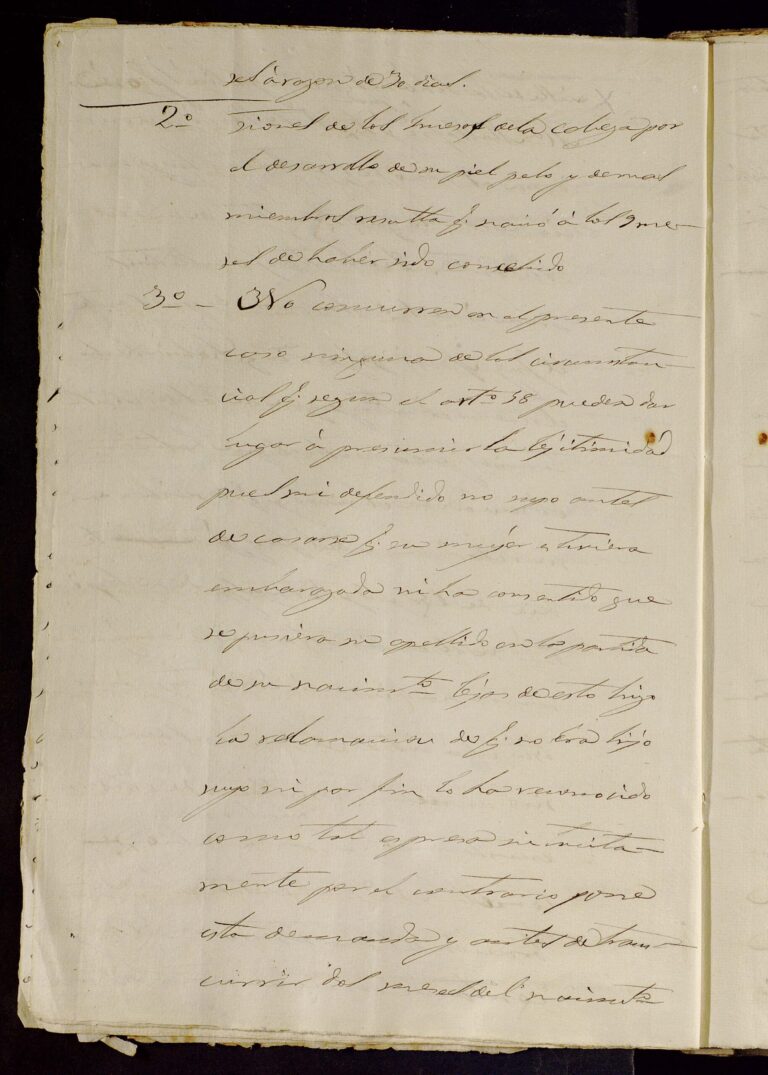 ses á razon de 30 dias.
2º siones de los huesos de la cabeza por
el desarrollo de su piel pelo y demas
miembros resulta q. nació á los 9 me-
ses de haber sido concebido
3º - No concurren en el presente
caso ninguna de las circunstan-
cias q. segun el artº 58 pueden dar
lugar á presumir la lejitimidad
pues mi defendido no supo antes
de casarse q. su mujer estuviera
embarazada ni ha consentido que
se pusiera su apellido en la partida
de su nacimtº lejos de esto hizo
la reclamacion de q. no era hijo
suyo ni por fin lo ha reconocido
como tal espresa ni tácita-
mente por el contrario pone
esta demanda y antes de trans-
currir dos meses del nacimtº